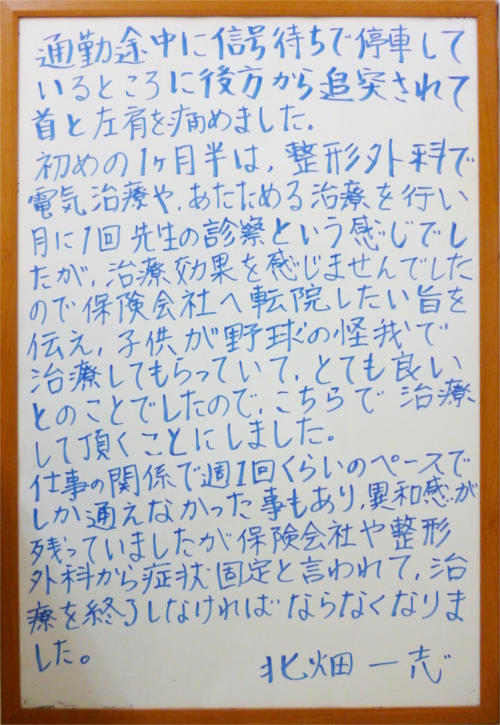 通勤途中に信号待ちで停車して
いるところに後方から追突されて
首と左肩を痛めました.
初めの1ヶ月半は,整形外科で
電気治療や,あたためる治療を行い
月に1回先生の診察という感じでし
たが,治療効果を感じませんでした
ので保険会社へ転院したい旨を
伝え,子供が野球の怪我で
治療してもらっていて,とても良い
とのことでしたので,こちらで治療
して頂くことにしました。
仕事の関係で週1回くらいのペースで
しか通えなかった事もあり,異和感が
残っていましたが保険会社や整形
外科から症状固定と言われて,治
療を終了しなければならなくなりま
した。
北畑一志